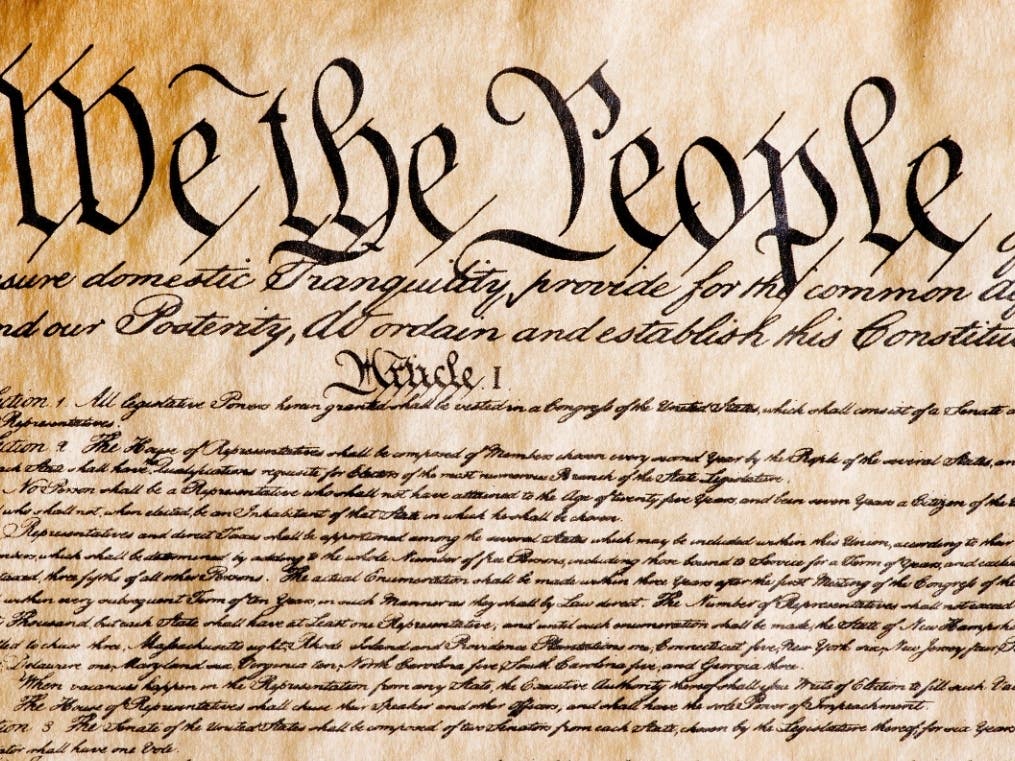 We the People
sure domestic Tranquility, provide for the common
nd our Posterity, do ordain and establish this Constitu
Article. I.
ction. 1. All legislative Powers herein granted shall be vested in a Congress of the United States, which shall consist of a Senate a
Representatives.
ction. 2. The House of Representatives shall be composed of Members chosen every second Year by the People of the several States, an
ach State shall have Qualifications requisite for Electors of the most numerous Branch of the State Legislature.
No Person shall be a Representative who shall not have attained to the Age of twenty five Years, and been seven Years a Citizen of the
who shall not, when elected, be an Inhabitant of that State in which he shall be chosen.
Representatives and direct Taxes shall be apportioned among the several States which may be included within this Union, according to their
mbers, which shall be determined by adding to the whole Number of free Persons, including those bound to Service for a Term of Years, and exclu
taxed, three fifths of all other Persons. The actual Enumeration shall be made within three Years after the first Meeting of the Congress of the
within every subsequent Term of ten Years, in such Manner as they shall by Law direct. The Number of Representatives shall not exceed
Thousand, but each State shall have at Least one Representative; and until such enumeration shall be made, the State of New Hampsh
tled to chuse three, Massachusetts eight, Rhode Island and Providence Plantations one, Connecticut five, New York six, New Jersey four,
Delaware one, Maryland six, Virginia ten, North Carolina five, South Carolina five, and Georgia three.
When vacancies happen in the Representation from any State, the Executive Authority thereof shall issue Writs of Election to fill such Va
The House of Representatives shall chuse their Speaker and other Officers; and shall have the sole Power of Impeachment.
tion. 3. The Senate of the United States shall be composed of two Senators from each State, chosen by the Legislature thereof, for six Years
ator shall have one Vote.